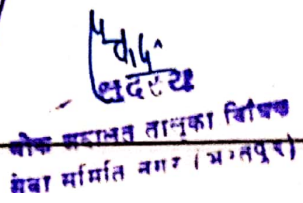 सदस्य
लोक अदालत तालुका विधिक
सेवा समिति नगर (भरतपुर)